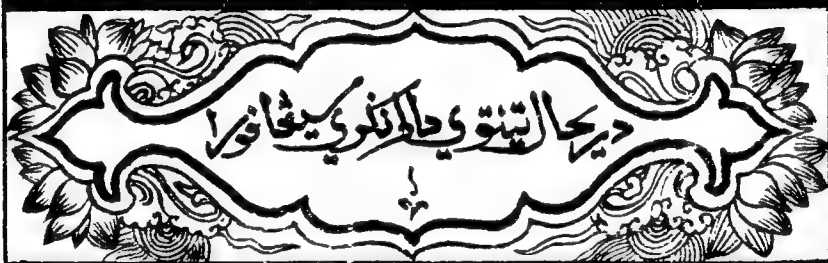 دريحال تينتوي دالم نكري سيڠافورا